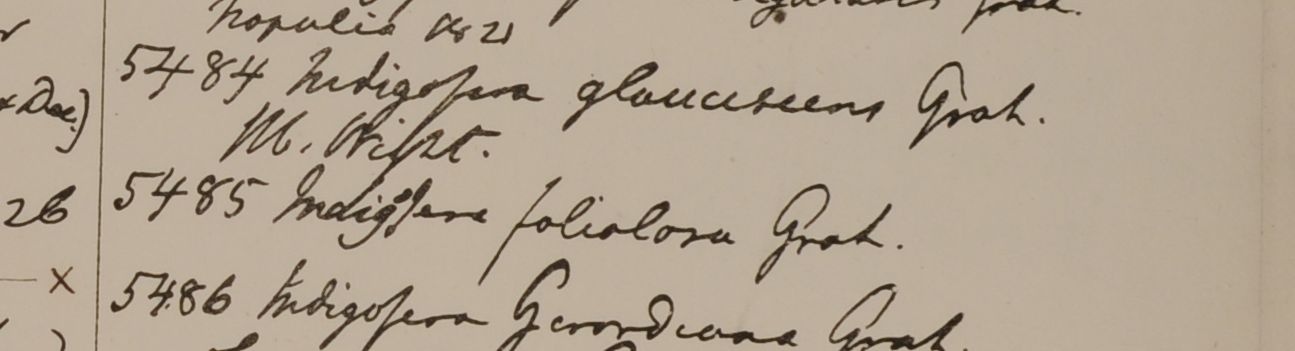 Napulia 1821 Grah.
5484 Indigofera glaucescens Grah.
& Dec.)
M. Wight.
26 5485 Indigofera foliolosa Grah.
x
5486 Indigofera Gerardiana Grah.